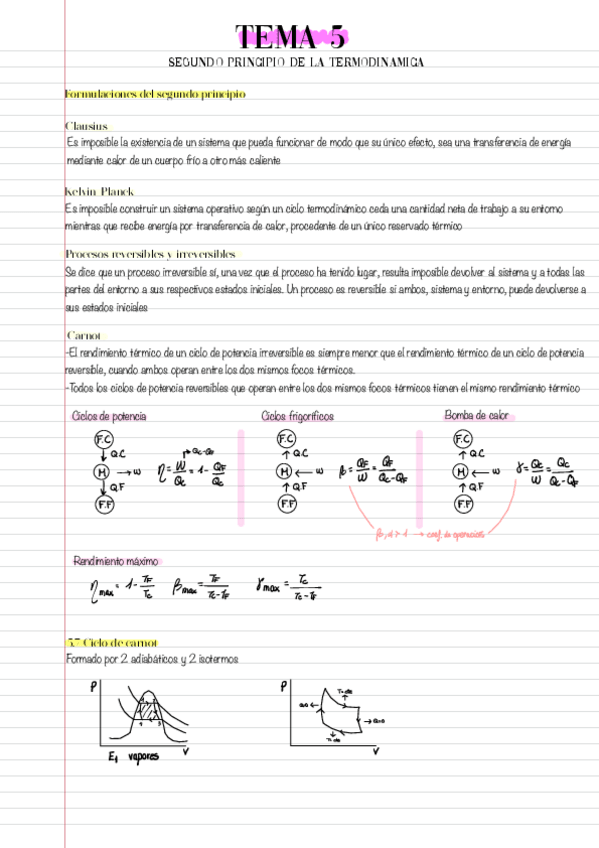 TEMA 5
SEGUNDO PRINCIPIO DE LA TERMODINAMICA
Formulaciones del segundo principio
Clausius
Es imposible la existencia de un sistema que pueda funcionar de modo que su único efecto, sea una transferencia de energía
mediante calor de un cuerpo frío a otro más caliente
Kelvin Planck
Es imposible construir un sistema operativo según un ciclo termodinámico ceda una cantidad neta de trabajo a su entorno
mientras que recibe energía por transferencia de calor, procedente de un único reservado térmico
Procesos reversibles y irreversibles
Se dice que un proceso irreversible sí, una vez que el proceso ha tenido lugar, resulta imposible devolver al sistema y a todas las
partes del entorno a sus respectivos estados iniciales. Un proceso es reversible si ambos, sistema y entorno, puede devolverse a
sus estados iniciales
Carnot
-El rendimiento térmico de un ciclo de potencia irreversible es siempre menor que el rendimiento térmico de un ciclo de potencia
reversible, cuando ambos operan entre los dos mismos focos térmicos.
-Todos los ciclos de potencia reversibles que operan entre los dos mismos focos térmicos tienen el mismo rendimiento térmico
Ciclos de potencia Ciclos frigoríficos Bomba de calor
F.C F.C F.C
↓ Q.C ↑ Q.C ↑ Q.C
M → W M ← W M ← W
↓ Q.F ↑ Q.F ↑ Q.F
F.F F.F F.F
Qc-QF
η = W/Qc = 1 - QF/Qc
β = QF/W = QF/(Qc-QF)
γ = Qc/W = Qc/(Qc-QF)
→ coef. de operación
Rendimiento máximo
ηmax = 1 - TF/Tc βmax = TF/(Tc-TF) γmax = Tc/(Tc-TF)
5.7 Ciclo de carnot
Formado por 2 adiabáticos y 2 isotermos
P P
V V
Ej vapores